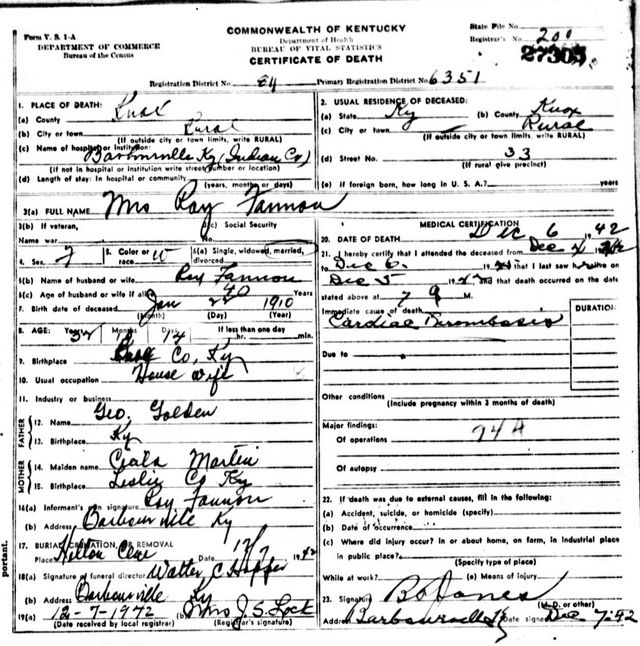 Form V. S. 1-A
DEPARTMENT OF COMMERCE
Bureau of the Census
COMMONWEALTH OF KENTUCKY
Department of Health
BUREAU OF VITAL STATISTICS
CERTIFICATE OF DEATH
State File No.
Registrar's No. 200
27305
Registration District No. 84 Primary Registration District No. 6351
1. PLACE OF DEATH:
(a) County Knox
(b) City or town Rural
(If outside city or town limits, write RURAL)
(c) Name of hospital or institution:
Barbourville Ky (Indian Co)
(If not in hospital or institution write street number or location)
(d) Length of stay: In hospital or community
(years, months or days)
2. USUAL RESIDENCE OF DECEASED:
(a) State Ky (b) County Knox
(c) City or town Rural
(If outside city or town limits, write RURAL)
(d) Street No. 33
(If rural give precinct)
(e) If foreign born, how long in U. S. A.? years
3(a) FULL NAME Mrs Roy Fannon
3(b) If veteran,
Name war
(c) Social Security
No.
4. Sex F 5. Color or race W 6(a) Single, widowed, married, divorced
6(b) Name of husband or wife Roy Fannon
6(c) Age of husband or wife if alive 40 Years
7. Birth date of deceased Jan 22 1910
(Month) (Day) (Year)
8. AGE: Years 32 Months Days 14 If less than one day
hr. min.
9. Birthplace Co, Ky
10. Usual occupation House wife
11. Industry or business
FATHER
12. Name Geo. Golden
13. Birthplace Ky
MOTHER
14. Maiden name Martin
15. Birthplace Leslie Co Ky
16(a) Informant's own signature Roy Fannon
(b) Address Barbourville Ky
17. BURIAL, CREMATION, OR REMOVAL
Place Date 12/7 1942
18(a) Signature of funeral director Walter C Hopper
(b) Address Barbourville Ky
19(a) 12-7-1942 Mrs J. S. Lock
(Date received by local registrar) (Registrar's signature)
MEDICAL CERTIFICATION
20. DATE OF DEATH Dec 6 1942
21. I hereby certify that I attended the deceased from Dec
to Dec 6 19 that I last saw h alive on
Dec 5 19 and that death occurred on the date
stated above at 7 M.
Immediate cause of death
Cardiac Thrombosis
DURATION:
Due to
Other conditions
(Include pregnancy within 3 months of death)
Major findings:
Of operations 94A
Of autopsy
22. If death was due to external causes, fill in the following:
(a) Accident, suicide, or homicide (specify)
(b) Date of occurrence
(c) Where did injury occur? in or about home, on farm, in industrial place
in public place?
(Specify type of place)
While at work? (e) Means of injury
23. Signature B O Jones
(M. D. or other)
Address Barbourville Ky Date signed Dec 7-42
portant.